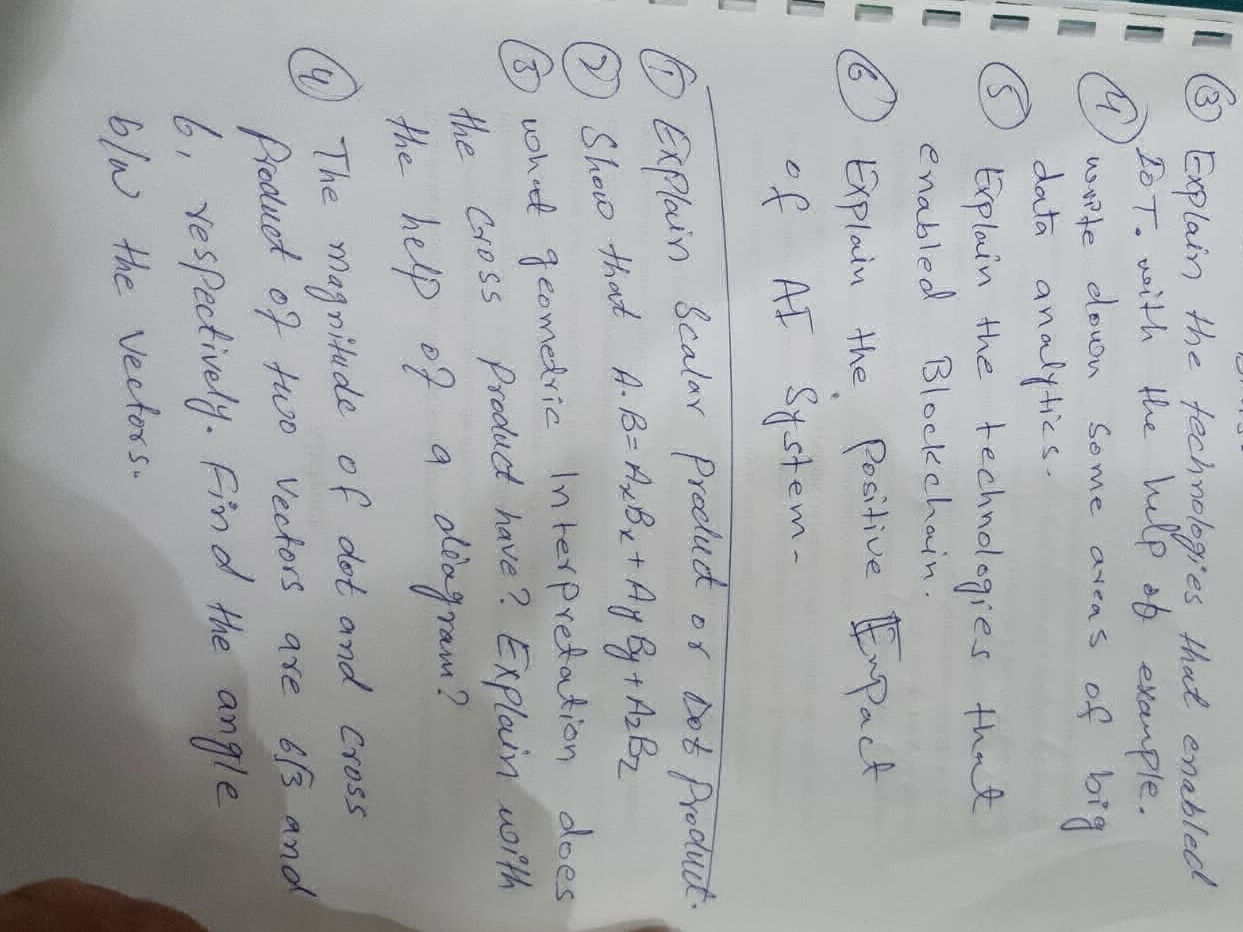 ③ Explain the technologies that enabled
IoT. with the help of example.
④ write down some areas of big
data analytics.
⑤ Explain the technologies that
enabled Blockchain.
⑥ Explain the Positive Impact
of AI System-
① Explain Scalar Product or Dot Product.
② Show that A.B = AxBx + AyBy + AzBz
③ what geometric Interpretation does
the Cross Product have? Explain with
the help of a diagram?
④ The magnitude of dot and cross
Product of two vectors are 6√3 and
6, respectively. Find the angle
b/w the vectors.